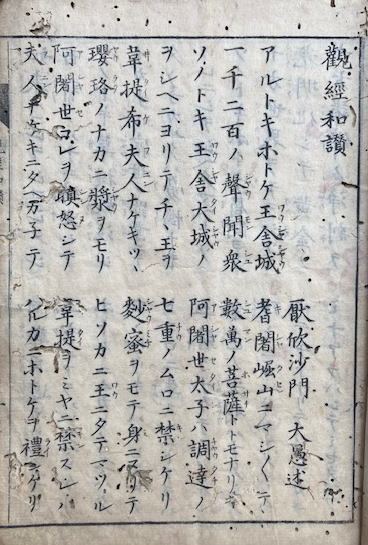 觀經和讃
厭欣沙門 大愚述
アルトキホトケ王舎城
耆闍崛山ニマシ〳〵テ
一千二百ノ聲聞衆
數萬ノ菩薩トトモナリキ
ソノトキ王舎大城ノ
阿闍世太子ハ調達ノ
ヲシヘニヨリテチヽ王ヲ
七重ノムロニ禁シケリ
韋提希夫人ナケキツヽ
麨蜜ヲモテ身ニヌリテ
瓔珞ノナカニ漿ヲモリ
ヒソカニ王ニタテマツル
阿闍世コレヲ嗔怒シテ
韋提ヲミヤニ禁スシノ
夫人ナケキニタヘカ子テ
ハルカニホトケヲ禮シケリ